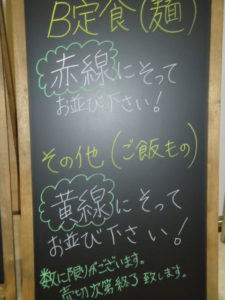 B定食(麺)
赤線にそって
お並び下さい!
その他(ご飯もの)
黄線にそって
お並び下さい!
数に限りがございます。
売切次第終了致します。